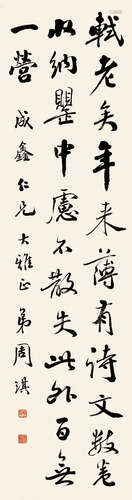 軾老矣年来薄有詩文數卷
收納罌中慮不散失此外百無
一營
成鑫仁兄大雅正
弟周淇